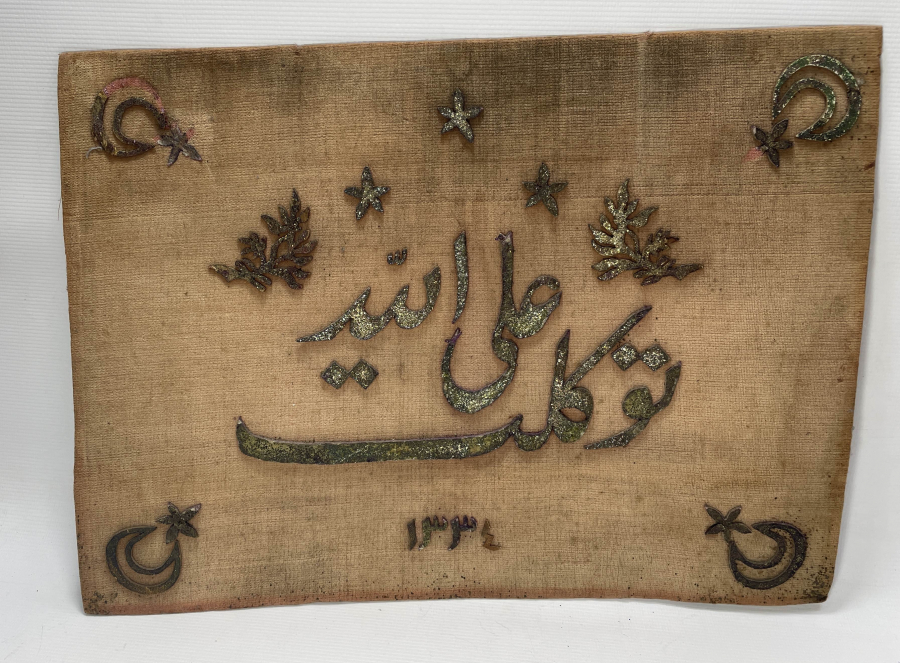 توكلت
على الله
١٣٣٤